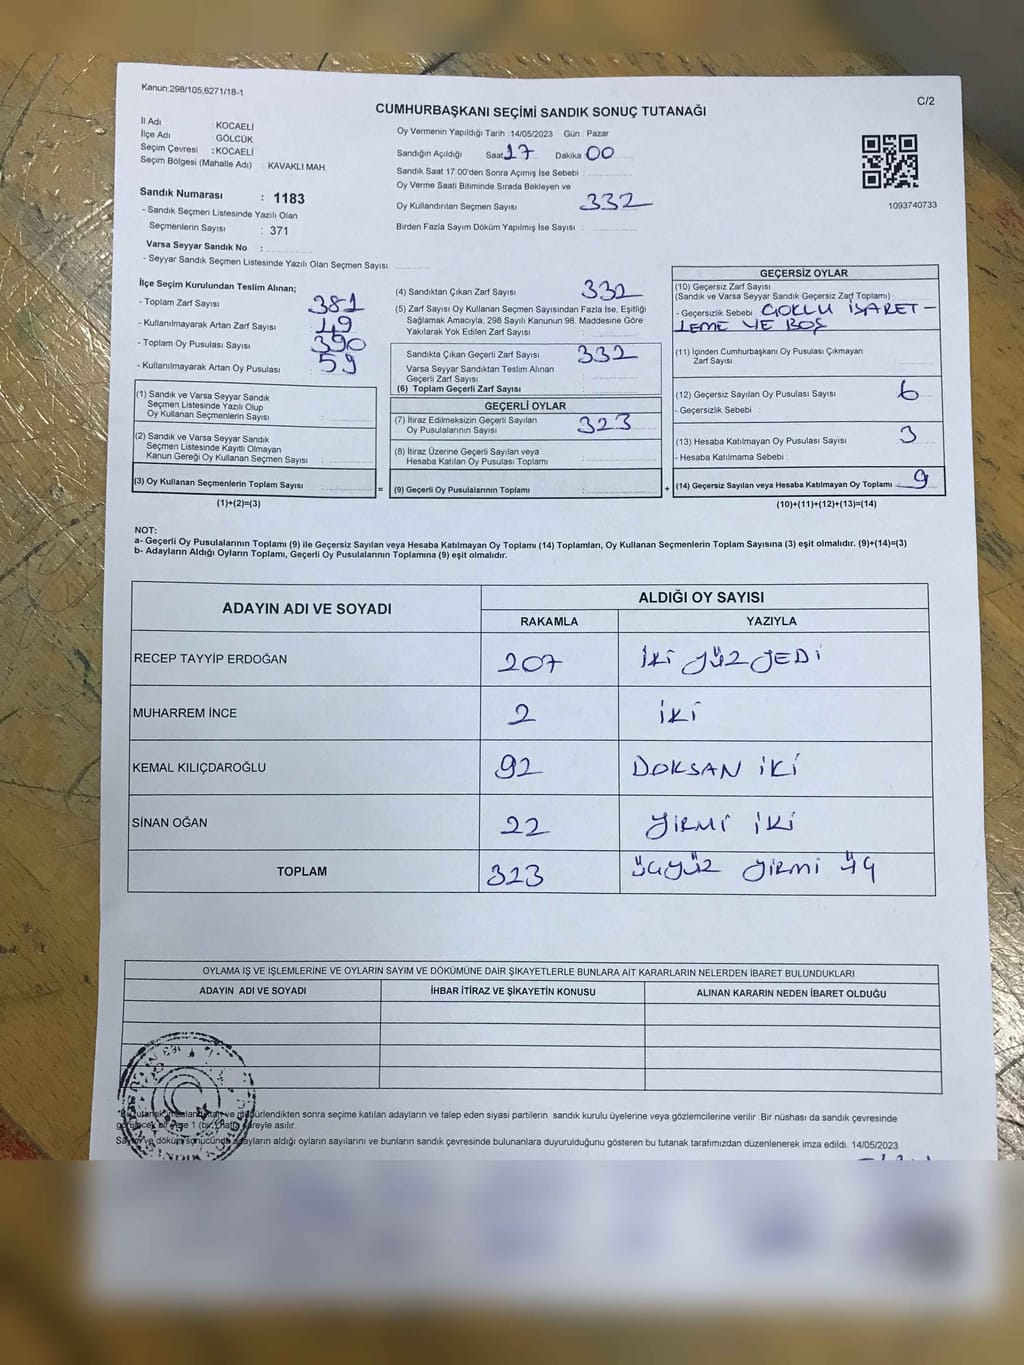 Kanun:298/105,6271/18-1
C/2
CUMHURBAŞKANI SEÇİMİ SANDIK SONUÇ TUTANAĞI
İl Adı : KOCAELİ
İlçe Adı : GÖLCÜK
Seçim Çevresi : KOCAELİ
Seçim Bölgesi (Mahalle Adı) : KAVAKLI MAH.
Sandık Numarası : 1183
- Sandık Seçmen Listesinde Yazılı Olan
Seçmenlerin Sayısı : 371
Varsa Seyyar Sandık No :
- Seyyar Sandık Seçmen Listesinde Yazılı Olan Seçmen Sayısı:
Oy Vermenin Yapıldığı Tarih :14/05/2023 Gün : Pazar
Sandığın Açıldığı Saat 17 Dakika 00
Sandık Saat 17.00'den Sonra Açımış İse Sebebi :
Oy Verme Saati Bitiminde Sırada Bekleyen ve
Oy Kullandırılan Seçmen Sayısı 332
Birden Fazla Sayım Döküm Yapılmış İse Sayısı :
1093740733
İlçe Seçim Kurulundan Teslim Alınan;
- Toplam Zarf Sayısı 381
- Kullanılmayarak Artan Zarf Sayısı 49
- Toplam Oy Pusulası Sayısı 390
- Kullanılmayarak Artan Oy Pusulası : 59
(1) Sandık ve Varsa Seyyar Sandık
Seçmen Listesinde Yazılı Olup
Oy Kullanan Seçmenlerin Sayısı :
(2) Sandık ve Varsa Seyyar Sandık
Seçmen Listesinde Kayıtlı Olmayan
Kanun Gereği Oy Kullanan Seçmen Sayısı :
(3) Oy Kullanan Seçmenlerin Toplam Sayısı :
(1)+(2)=(3)
(4) Sandıktan Çıkan Zarf Sayısı 332
(5) Zarf Sayısı Oy Kullanan Seçmen Sayısından Fazla İse, Eşitliği
Sağlamak Amacıyla, 298 Sayılı Kanunun 98. Maddesine Göre
Yakılarak Yok Edilen Zarf Sayısı :
Sandıkta Çıkan Geçerli Zarf Sayısı 332
Varsa Seyyar Sandıktan Teslim Alınan
Geçerli Zarf Sayısı
(6) Toplam Geçerli Zarf Sayısı
GEÇERLİ OYLAR
(7) İtiraz Edilmeksizin Geçerli Sayılan
Oy Pusulalarının Sayısı 323
(8) İtiraz Üzerine Geçerli Sayılan veya
Hesaba Katılan Oy Pusulası Toplamı :
= (9) Geçerli Oy Pusulalarının Toplamı :
GEÇERSİZ OYLAR
(10) Geçersiz Zarf Sayısı
(Sandık ve Varsa Seyyar Sandık Geçersiz Zarf Toplamı) :
- Geçersizlik Sebebi ÇOKLU İŞARET-
LEME VE BOŞ
(11) İçinden Cumhurbaşkanı Oy Pusulası Çıkmayan
Zarf Sayısı
(12) Geçersiz Sayılan Oy Pusulası Sayısı 6
- Geçersizlik Sebebi :
(13) Hesaba Katılmayan Oy Pusulası Sayısı 3
- Hesaba Katılmama Sebebi :
+ (14) Geçersiz Sayılan veya Hesaba Katılmayan Oy Toplamı 9
(10)+(11)+(12)+(13)=(14)
NOT:
a- Geçerli Oy Pusulalarının Toplamı (9) ile Geçersiz Sayılan veya Hesaba Katılmayan Oy Toplamı (14) Toplamları, Oy Kullanan Seçmenlerin Toplam Sayısına (3) eşit olmalıdır. (9)+(14)=(3)
b- Adayların Aldığı Oyların Toplamı, Geçerli Oy Pusulalarının Toplamına (9) eşit olmalıdır.
ADAYIN ADI VE SOYADI
ALDIĞI OY SAYISI
RAKAMLA YAZIYLA
RECEP TAYYİP ERDOĞAN 207 İKİ YÜZ YEDİ
MUHARREM İNCE 2 İKİ
KEMAL KILIÇDAROĞLU 92 DOKSAN İKİ
SİNAN OĞAN 22 YİRMİ İKİ
TOPLAM 323 ÜÇYÜZ YİRMİ ÜÇ
OYLAMA İŞ VE İŞLEMLERİNE VE OYLARIN SAYIM VE DÖKÜMÜNE DAİR ŞİKAYETLERLE BUNLARA AİT KARARLARIN NELERDEN İBARET BULUNDUKLARI
ADAYIN ADI VE SOYADI İHBAR İTİRAZ VE ŞİKAYETİN KONUSU ALINAN KARARIN NEDEN İBARET OLDUĞU
ve mühürlendikten sonra seçime katılan adayların ve talep eden siyasi partilerin sandık kurulu üyelerine veya gözlemcilerine verilir. Bir nüshası da sandık çevresinde
1 (bir) hafta süreyle asılır.
Sayım ve döküm sonucunda adayların aldığı oyların sayılarını ve bunların sandık çevresinde bulunanlara duyurulduğunu gösteren bu tutanak tarafımızdan düzenlenerek imza edildi. 14/05/2023